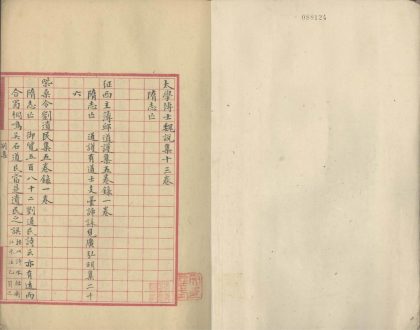 太學博士魏說集十三卷
隋志亡
征西主簿郗道謨集五卷錄一卷
隋志亡　道謨有道士支曇諦誄見廣弘明集二十
六
柴桑令劉遺民集五卷錄一卷
隋志亡　御覽五百八十二劉道民詩云亦有遠而
合蜀桐鳴吳石道民當是遺民之誤
088124